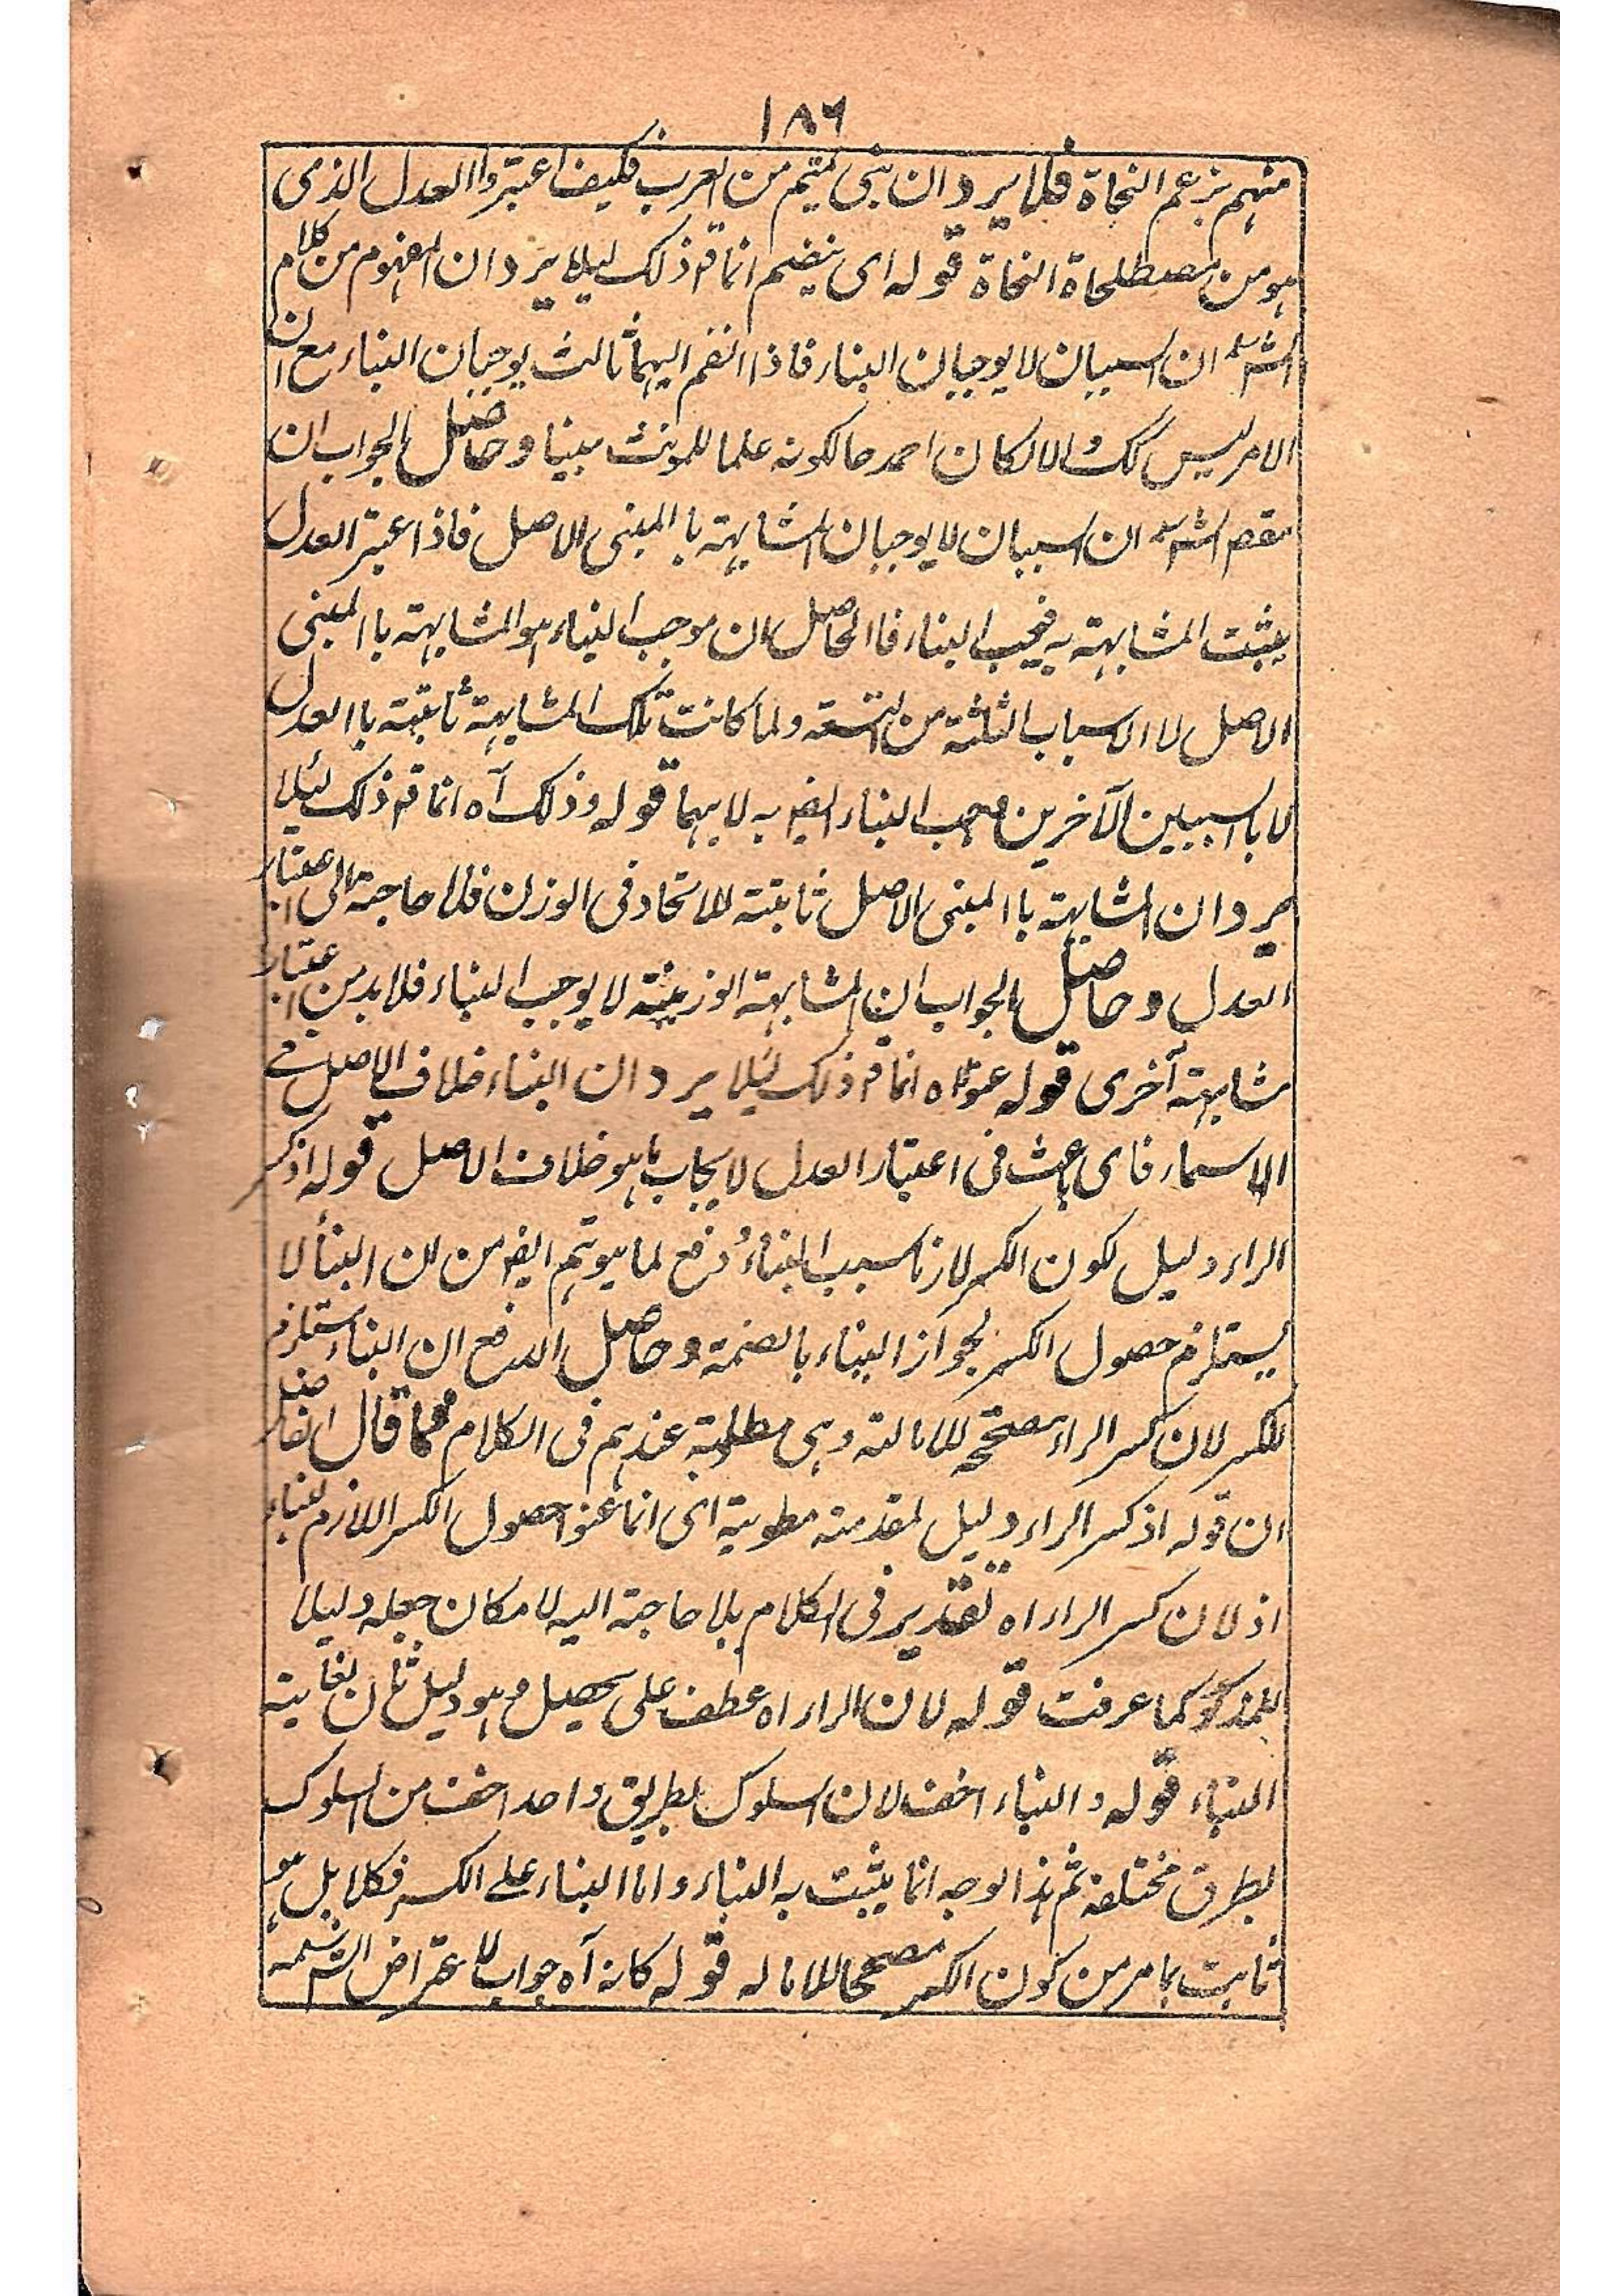 ١٨٦
منهم بزعم النحاة فلا يرد ان بنى تميم من العرب فكيف اعتبروا العدل الذى
هو من مصطلحاة النحاة قوله اى ينضم انما قه ذلك ليلا يرد ان المفهوم من كلام
الشرسه ان السببان لا يوجبان البناء فاذا انضم اليهما ثالث يوجبان البناء مع ان
الامر ليس كك والا لكان احمد حالكونه علما للمونث مبنيا وحاصل الجواب ان
مقصد الشرسه ان السببان لا يوجبان المشابهة با المبنى الاصل فاذا اعتبر العدل
يثبت المشابهة به فيجب البناء فا الحاصل ان موجب البناء هو المشابهة با المبنى
الاصل لا الاسباب الثلثة من التسعة ولما كانت تلك المشابهة ثابتة با العدل
لا با السببين الآخرين البناء ايضه به لا بهما قوله وذلك آه انما قه ذلك لئلا
يرد ان المشابهة با المبنى الاصل ثابتة للاتحاد فى الوزن فلا حاجة الى اعتبار
العدل وحاصل الجواب ان المشابهة الوزنية لا يوجب البناء فلا بد من اعتبار
مشابهة آخرى قوله اه انما قه ذلك ليلا يرد ان البناء خلاف الاصل فى
الاسماء فاى باعث فى اعتبار العدل لايجاب ما هو خلاف الاصل قوله اذ كسر
الراء دليل لكون الكسر لازما بسبب البناء دفع لما يتوهم ايضه من ان البناء لا
يستلزم حصول الكسر لجواز البناء بالضمة وحاصل الدفع ان البناء مستلزم
للكسر لان كسر الراء مصححة للامالة وهى مطلوبة عندهم فى الكلام فما قال الفاضل
ان قوله اذ كسر الراء دليل لمقدمة مطوية اى انما عنوا حصول الكسر اللازم للبناء
اذ لان كسر الراء اه تقدير فى الكلام بلا حاجة اليه لامكان جعله دليلا
للمذكور كما عرفت قوله لان الراء اه عطف على تحصيل وهو دليل ثان لغاية
البناء قوله والبناء اخف لان السلوك بطريق واحد اخف من السلوك
بطرق مختلفة ثم هذا الوجه انما يثبت به البناء واما البناء على الكسر فكلا بل هو
ثابت بما مر من كون الكسر مصححا للامالة قوله كانه آه جواب لاعتراض الشرسمه